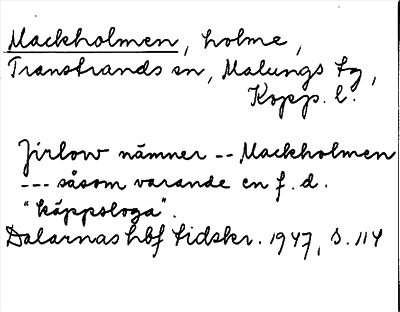 Mackholmen, holme,
Transtrands sn, Malungs tg,
Kopp. l.
Jirlow nämner -- Mackholmen
--- såsom varande en f. d.
"käppsloga".
Dalarnas hbf tidskr. 1947, s. 114